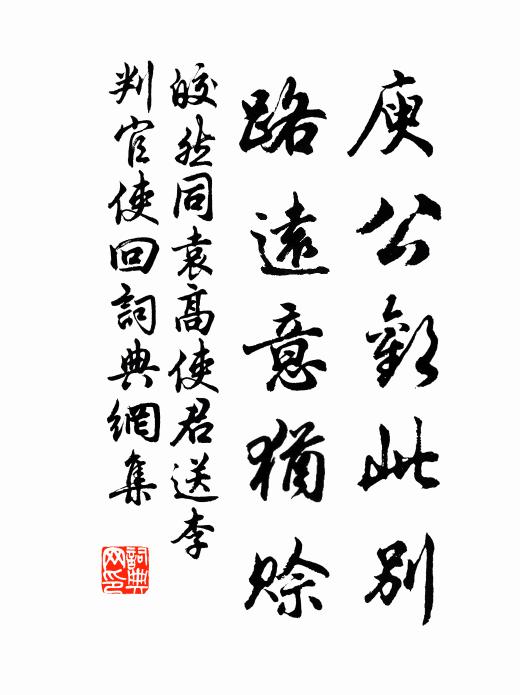 庾公欵此別
路遠意猶賒
皎然同袁高使君送李
判官使回詞典網集
詞典网印